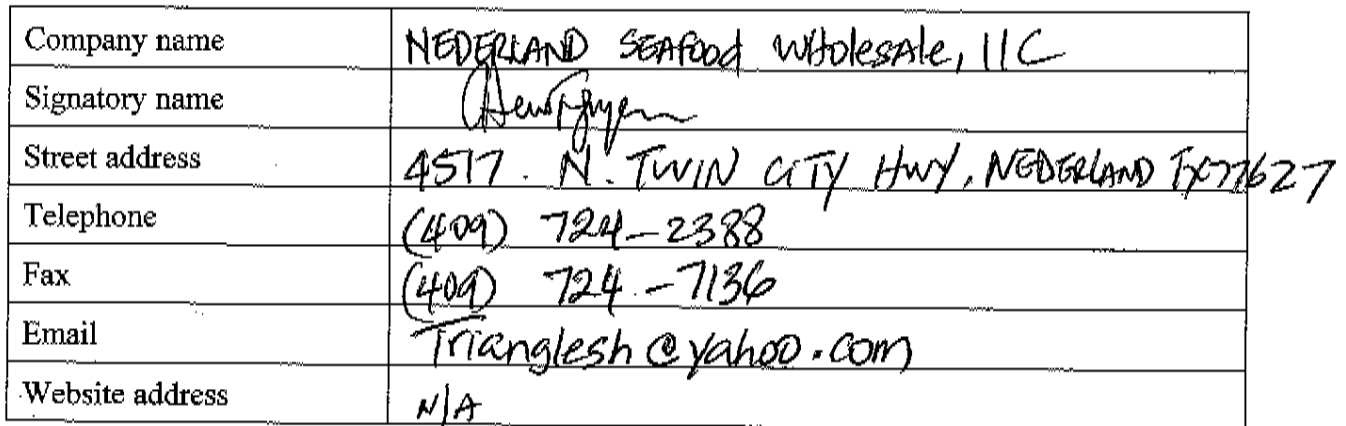 Company name NEDERLAND SEAFOOD WHolesAle, llC
Signatory name
Street address 4517. N. TWIN CITY HWY, NEDERLAND TX 77627
Telephone (409) 724-2388
Fax (409) 724-7136
Email Trianglesh@yahoo.com
Website address N/A